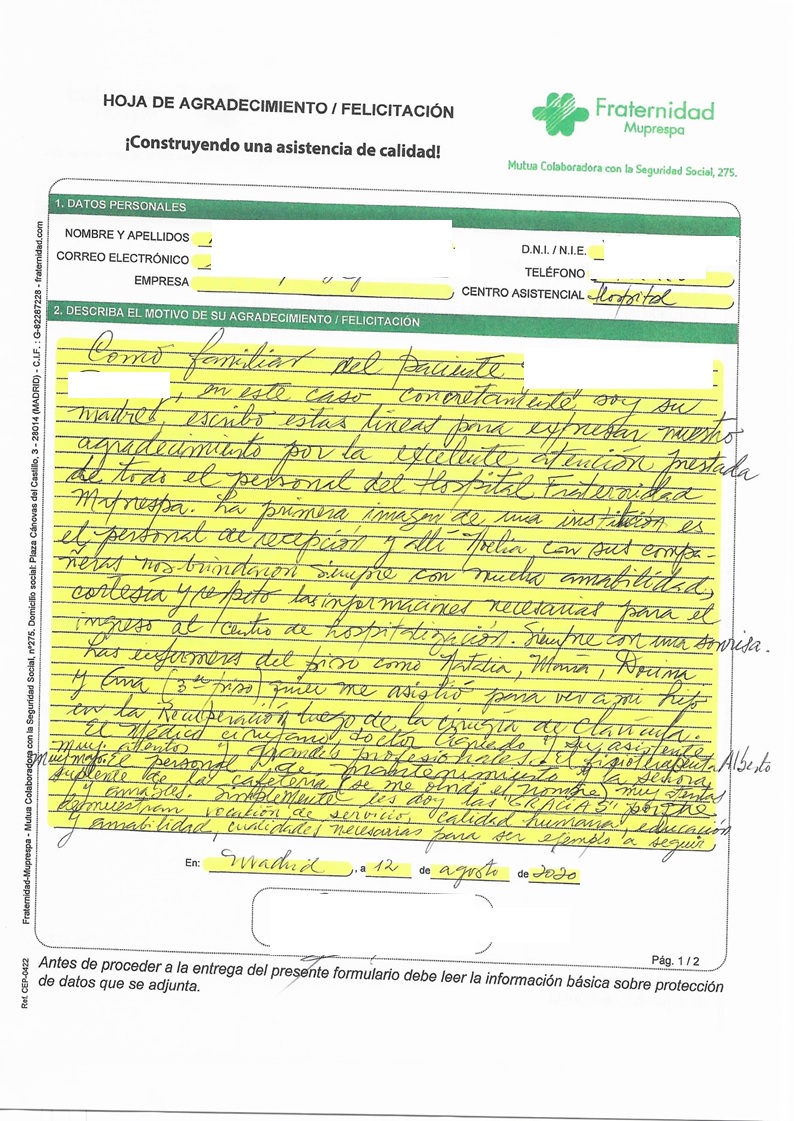 HOJA DE AGRADECIMIENTO / FELICITACIÓN
¡Construyendo una asistencia de calidad!
Fraternidad
Muprespa
Mutua Colaboradora con la Seguridad Social, 275.
1. DATOS PERSONALES
NOMBRE Y APELLIDOS
D.N.I. / N.I.E.
CORREO ELECTRÓNICO
TELÉFONO
EMPRESA
CENTRO ASISTENCIAL Hospital
2. DESCRIBA EL MOTIVO DE SU AGRADECIMIENTO / FELICITACIÓN
Como familiar del paciente
, en este caso concretamente soy su
madre, escribo estas líneas para expresar nuestro
agradecimiento por la excelente atención prestada
de todo el personal del Hospital Fraternidad
Muprespa. La primera imagen de una institución es
el personal de recepción y allí Noelia, con sus compa-
ñeras nos brindaron siempre con mucha amabilidad,
cortesía y respeto las informaciones necesarias para el
ingreso al centro de hospitalización. Siempre con una sonrisa.
Las enfermeras del piso como Natalia, María,
y Ana (3er piso) quien me asistió para ver a mi hijo
en la Recuperación luego de la cirugía de Clavícula.
El Médico cirujano, doctor y su asistente
muy atentos y grandes profesionales. El fisioterapeuta Alberto
muy majo. El personal de mantenimiento y la señora
suplente de la cafetería (se me olvidó el nombre) muy atentas
y amables. Simplemente les doy las "GRACIAS" porque
demuestran vocación de servicio, calidad humana, educación
y amabilidad, cualidades necesarias para ser ejemplo a seguir.
En: Madrid , a 12 de agosto de 2020
Pág. 1 / 2
Antes de proceder a la entrega del presente formulario debe leer la información básica sobre protección
de datos que se adjunta.
Fraternidad-Muprespa - Mutua Colaboradora con la Seguridad Social, nº275. Domicilio social: Plaza Cánovas del Castillo, 3 - 28014 (MADRID) - C.I.F. : G-82287228 - fraternidad.com
Ref. CEP-0422